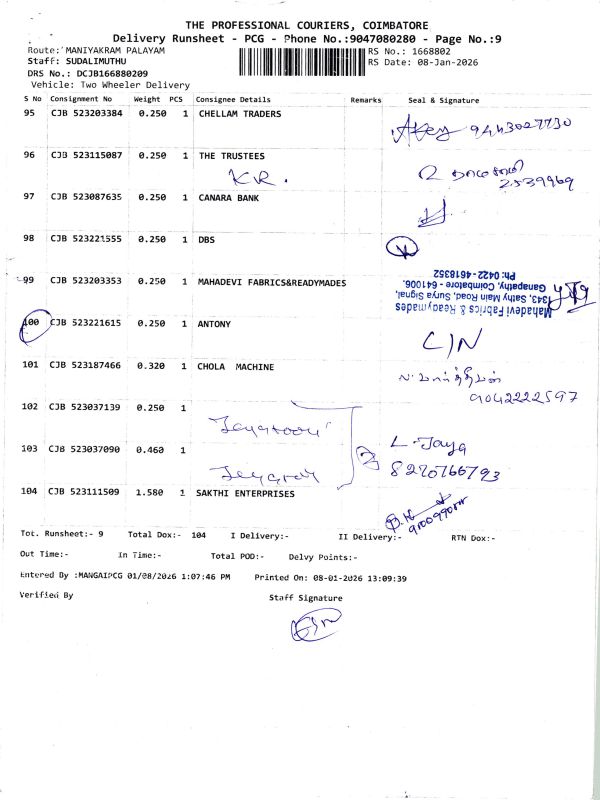 THE PROFESSIONAL COURIERS, COIMBATORE
Delivery Runsheet - PCG - Phone No.:9047080280 - Page No.:9
Route: MANIYAKRAM PALAYAM
RS No.: 1668802
Staff: SUDALIMUTHU
RS Date: 08-Jan-2026
DRS No.: DCJB166880209
Vehicle: Two Wheeler Delivery
S No Consignment No Weight PCS Consignee Details Remarks Seal & Signature
95 CJB 523203384 0.250 1 CHELLAM TRADERS
9443027730
96 CJB 523115087 0.250 1 THE TRUSTEES
K.R.
2539969
97 CJB 523087635 0.250 1 CANARA BANK
98 CJB 523221555 0.250 1 DBS
99 CJB 523203353 0.250 1 MAHADEVI FABRICS&READYMADES
Mahadevi Fabrics & Readymades
1343, Sathy Main Road, Surya Signal,
Ganapathy, Coimbatore - 641006.
Ph: 0422-4618352
100 CJB 523221615 0.250 1 ANTONY
C/N
101 CJB 523187466 0.320 1 CHOLA MACHINE
9042222597
102 CJB 523037139 0.250 1
103 CJB 523037090 0.460 1
L. Jaya
8270766793
104 CJB 523111509 1.580 1 SAKTHI ENTERPRISES
Tot. Runsheet:- 9 Total Dox:- 104 I Delivery:- II Delivery:- RTN Dox:-
Out Time:- In Time:- Total POD:- Delvy Points:-
Entered By :MANGAIPCG 01/08/2026 1:07:46 PM Printed On: 08-01-2026 13:09:39
Verified By Staff Signature